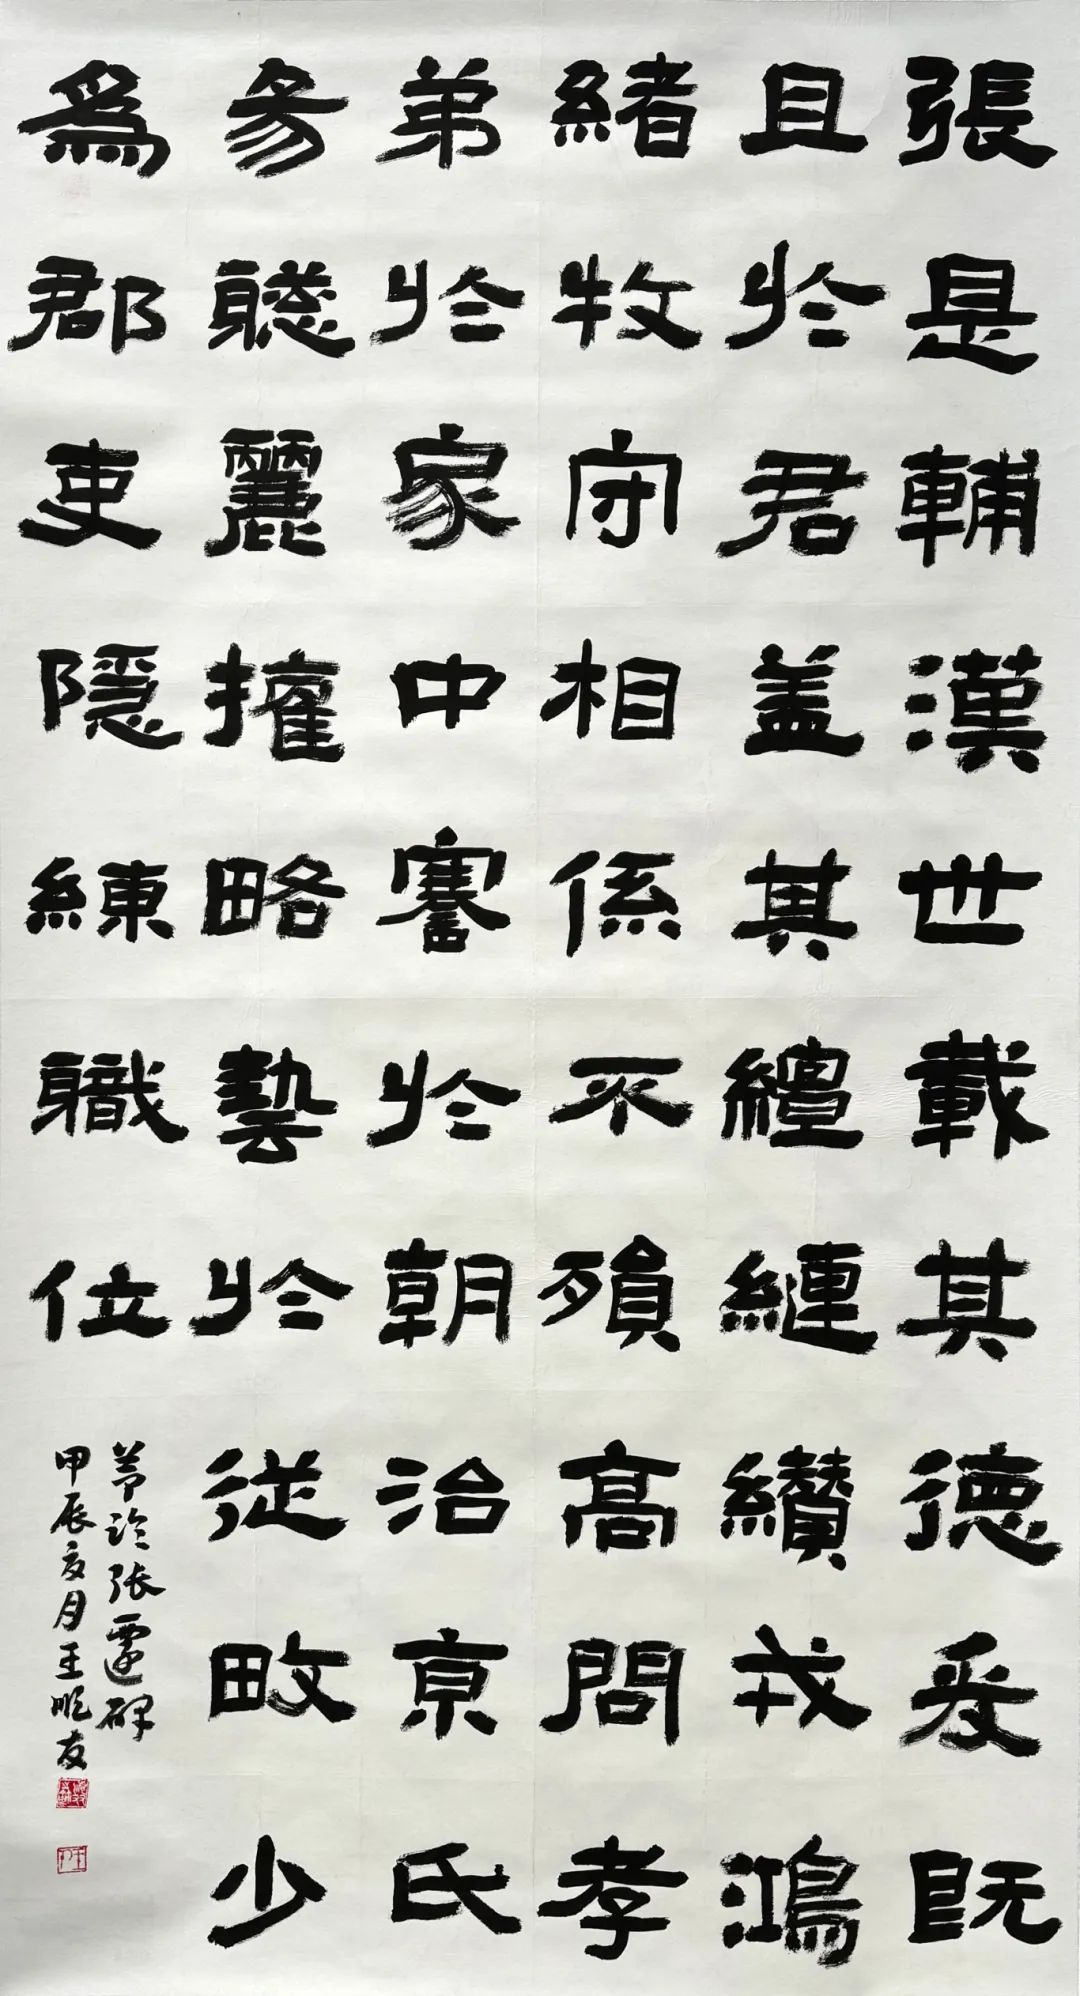 張是輔漢世載其德爰既
且於君盖其繵縺纘戎鴻
緒牧守相係不殞高問孝
弟於家中謇於朝治京氏
易聰麗權略藝於從畋少
爲郡吏隱練職位
節臨張遷碑
甲辰夏月王順友